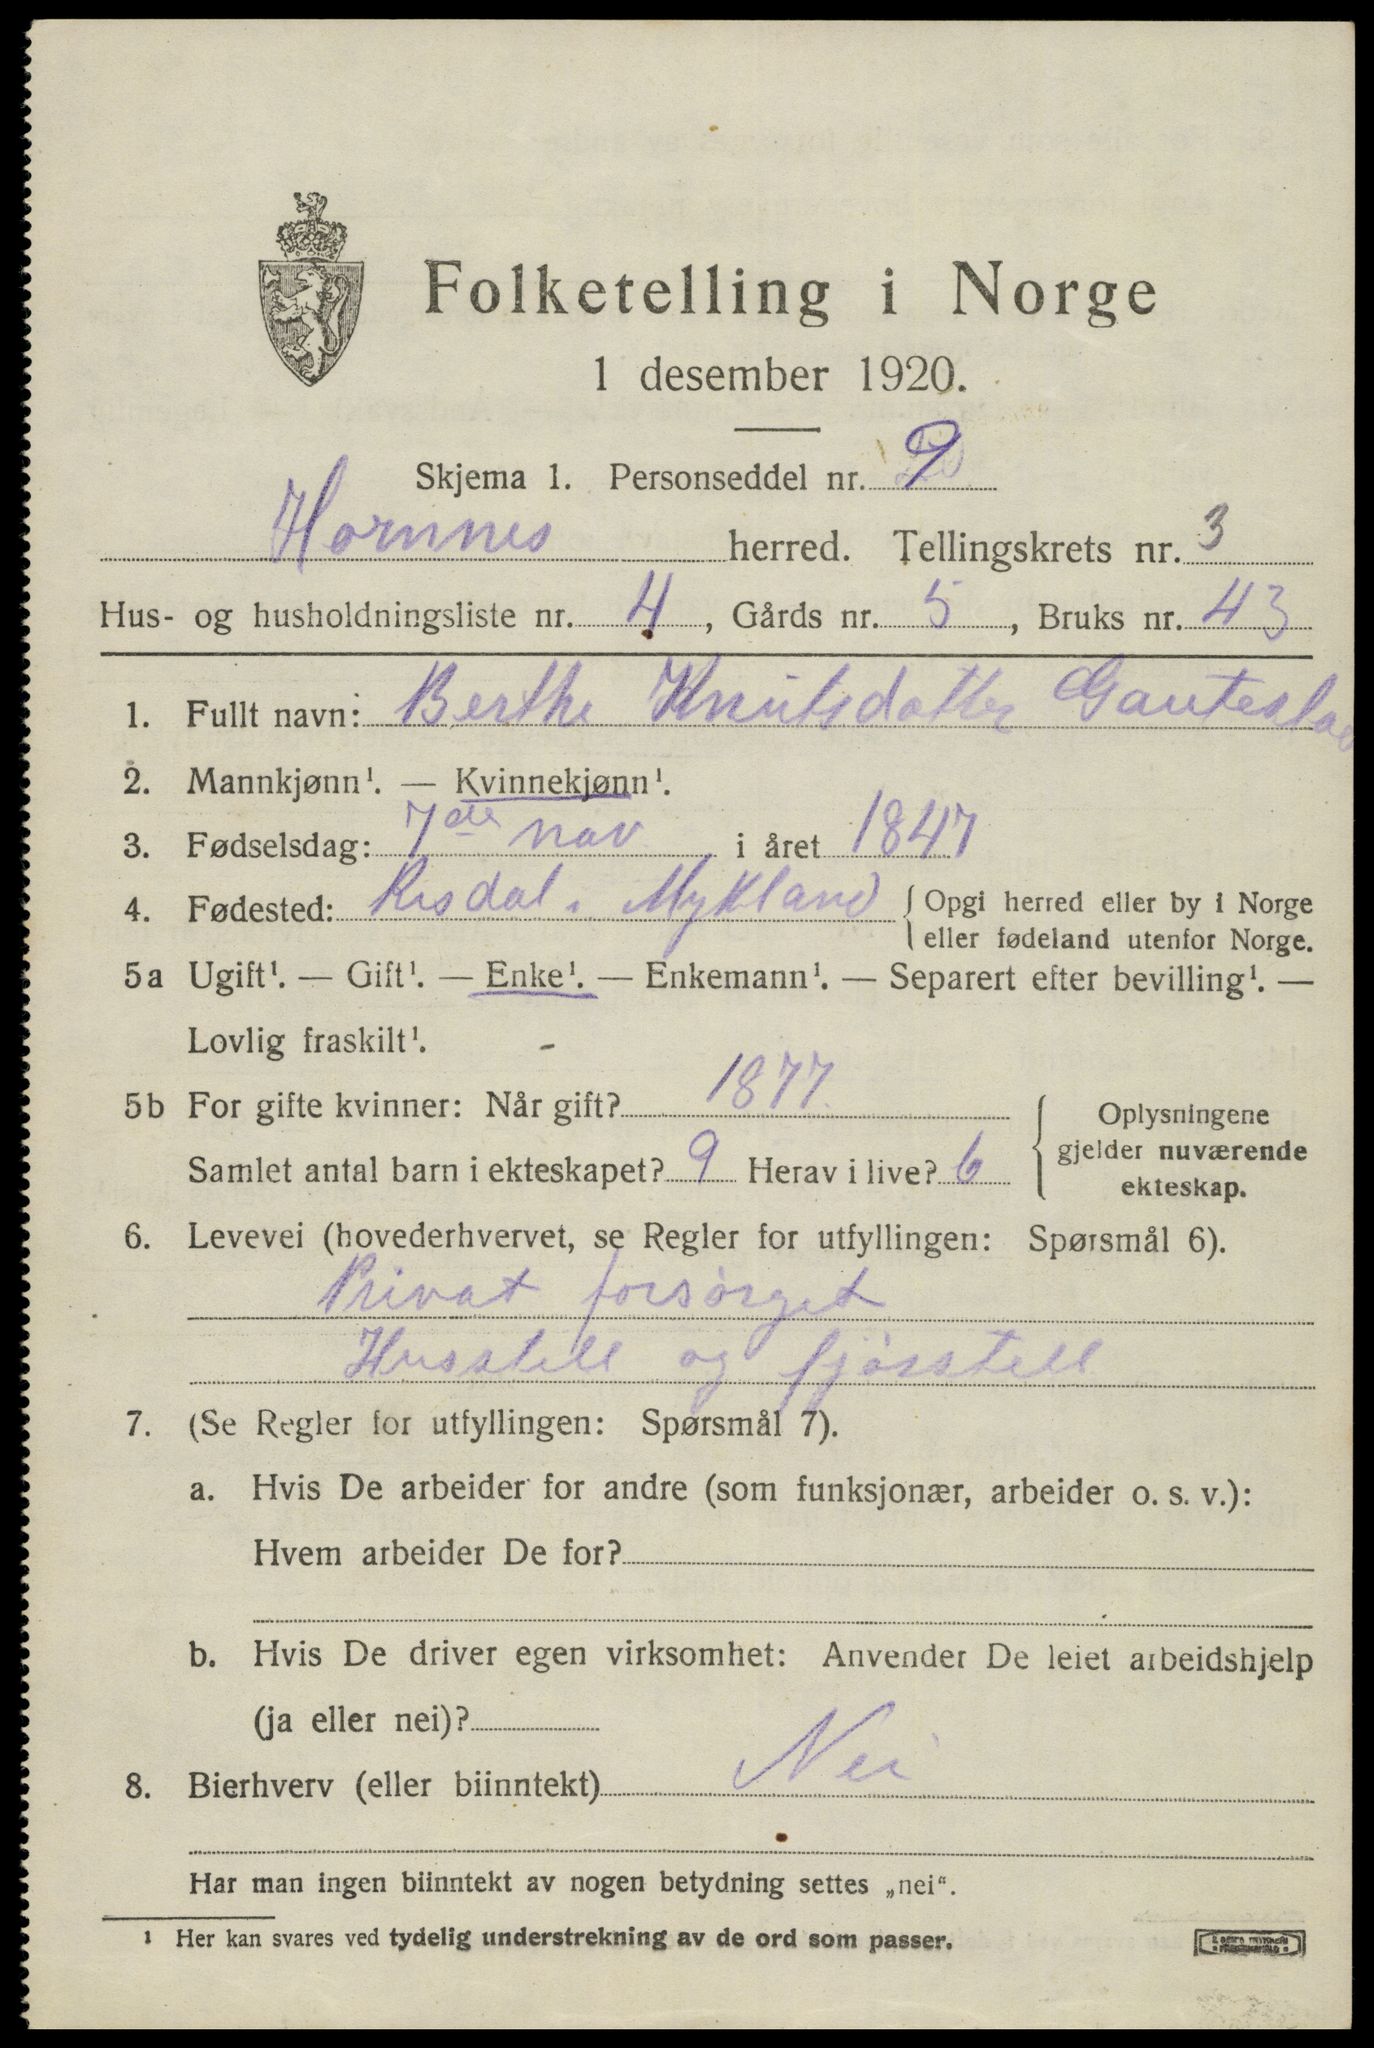 Folketelling i Norge
1 desember 1920.
Skjema 1. Personseddel nr. 9
Hornnes herred. Tellingskrets nr. 3
Hus- og husholdningsliste nr. 4, Gårds nr. 5, Bruks nr. 43
1. Fullt navn: Berthe Knutsdatter Gautestad
2. Mannkjønn¹. — Kvinnekjønn¹.
3. Fødselsdag: 7de nov i året 1847
4. Fødested: Risdal i Mykland { Opgi herred eller by i Norge
eller fødeland utenfor Norge.
5a Ugift¹. — Gift¹. — Enke¹. — Enkemann¹. — Separert efter bevilling¹. —
Lovlig fraskilt¹. -
5b For gifte kvinner: Når gift? 1877
Samlet antal barn i ekteskapet? 9 Herav i live? 6
{ Oplysningene
gjelder nuværende
ekteskap.
6. Levevei (hovederhvervet, se Regler for utfyllingen: Spørsmål 6).
Privat forsörget
Husstell og fjösstell
7. (Se Regler for utfyllingen: Spørsmål 7).
a. Hvis De arbeider for andre (som funksjonær, arbeider o. s. v.):
Hvem arbeider De for?
b. Hvis De driver egen virksomhet: Anvender De leiet arbeidshjelp
(ja eller nei)?
8. Bierhverv (eller biinntekt) Nei
Har man ingen biinntekt av nogen betydning settes „nei“.
¹ Her kan svares ved tydelig understrekning av de ord som passer.